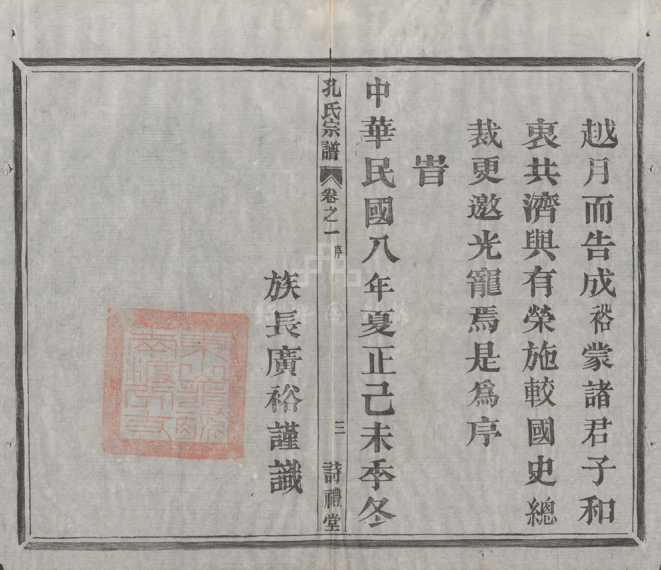 越月而告成裕蒙諸君子和
衷共濟與有榮施較國史總
裁更邀光寵焉是爲序
旹
中華民國八年夏正己未季冬
孔氏宗譜
卷之一
序
三
詩禮堂
族長廣裕謹識